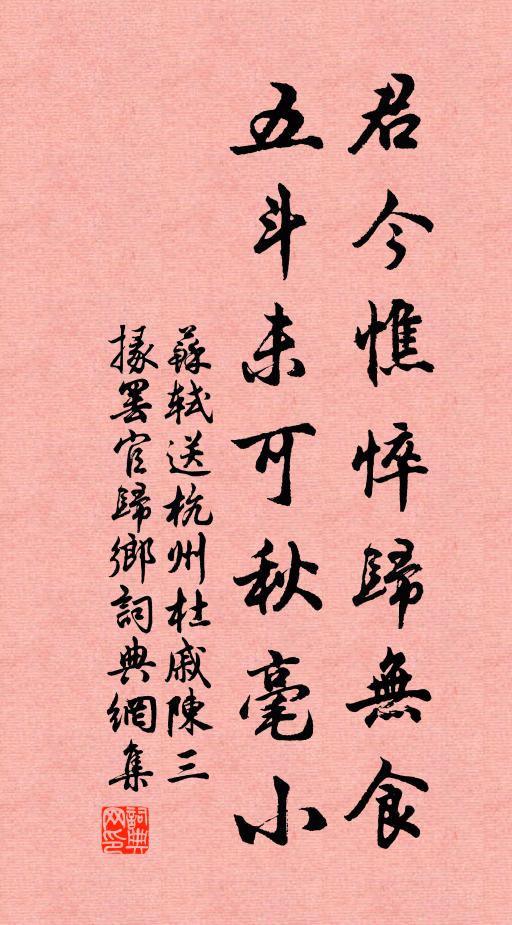 君今憔悴歸無食
五斗未可秋毫小
蘇軾送杭州杜戚陳三
掾罢官歸鄉詞典網集
詞典
网印